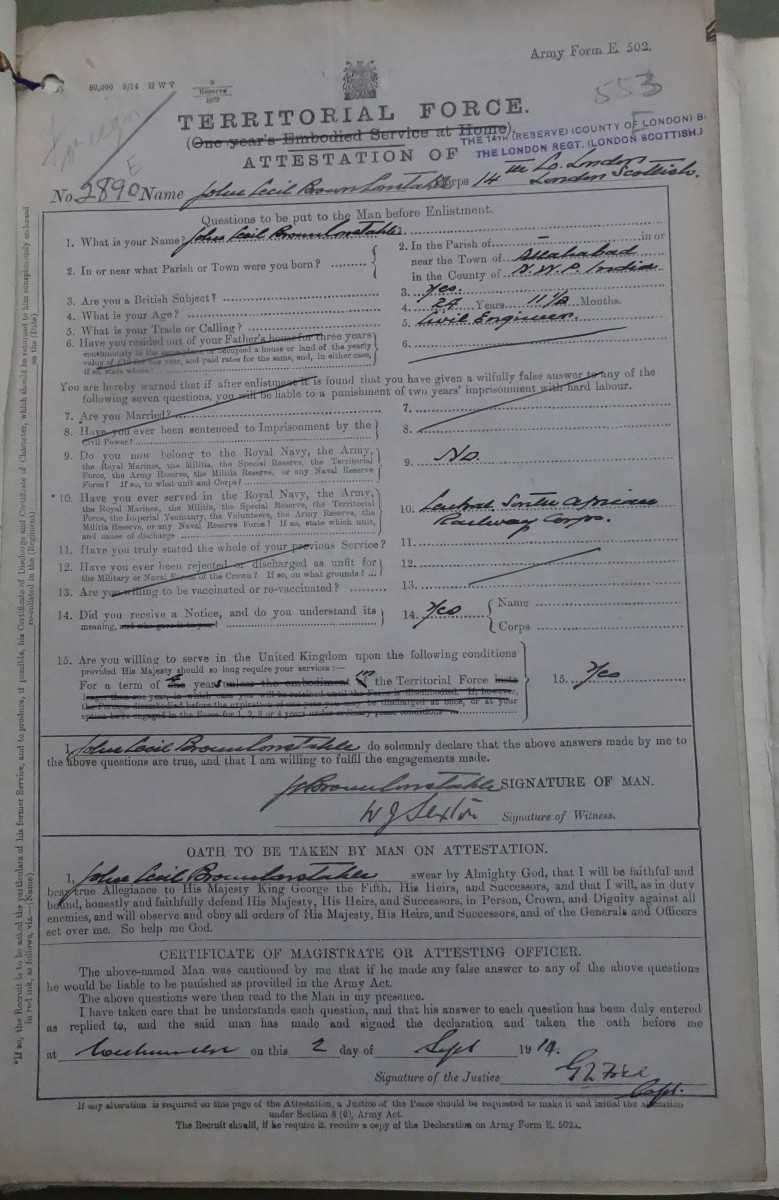 Army Form E. 502.
553
80,000 8/14 H W V 9 Reserve 1072
Foreign
TERRITORIAL FORCE.
(One year's Embodied Service at Home).
THE 14TH (RESERVE) (COUNTY OF LONDON) B
E
ATTESTATION OF THE LONDON REGT. (LONDON SCOTTISH.)
No. 2890 E Name John Cecil Brown Constable Corps 14th Co. London London Scottish.
Questions to be put to the Man before Enlistment.
1. What is your Name? John Cecil Brown Constable
2. In or near what Parish or Town were you born?
2. In the Parish of — in or
near the Town of Allahabad
in the County of N.W.P. India
3. Are you a British Subject? 3. Yes.
4. What is your Age? 4. 24 Years 11½ Months.
5. What is your Trade or Calling? 5. Civil Engineer.
6. Have you resided out of your Father's house for three years 6.
continuously in the same place, or occupied a house or land of the yearly
value of £10 for one year, and paid rates for the same, and, in either case,
if so, state where?
You are hereby warned that if after enlistment it is found that you have given a wilfully false answer to any of the
following seven questions, you will be liable to a punishment of two years' imprisonment with hard labour.
7. Are you Married? 7.
8. Have you ever been sentenced to Imprisonment by the 8.
Civil Power?
9. Do you now belong to the Royal Navy, the Army, 9. No.
the Royal Marines, the Militia, the Special Reserve, the Territorial
Force, the Army Reserve, the Militia Reserve, or any Naval Reserve
Force? If so, to what unit and Corps?
*10. Have you ever served in the Royal Navy, the Army, 10. Central South African
the Royal Marines, the Militia, the Special Reserve, the Territorial Railway Corps.
Force, the Imperial Yeomanry, the Volunteers, the Army Reserve, the
Militia Reserve, or any Naval Reserve Force? If so, state which unit,
and cause of discharge
11. Have you truly stated the whole of your previous Service? 11.
12. Have you ever been rejected or discharged as unfit for 12.
the Military or Naval Forces of the Crown? If so, on what grounds?
13. Are you willing to be vaccinated or re-vaccinated? 13.
14. Did you receive a Notice, and do you understand its 14. Yes { Name
meaning, and who gave it to you? Corps
15. Are you willing to serve in the United Kingdom upon the following conditions
provided His Majesty should so long require your services:—
For a term of 4 years unless the embodiment in the Territorial Force 15. Yes
longer than one year, in which case you will be retained until the Force is disembodied. If, however,
the Force is disembodied before the expiration of one year you may be discharged at once, or at your
option be re-engaged in the Force for 1, 2, 3 or 4 years under ordinary peace conditions
I, John Cecil Brown Constable do solemnly declare that the above answers made by me to
the above questions are true, and that I am willing to fulfil the engagements made.
J Brown Constable SIGNATURE OF MAN.
W J Sexton Signature of Witness.
OATH TO BE TAKEN BY MAN ON ATTESTATION.
I, John Cecil Brown Constable swear by Almighty God, that I will be faithful and
bear true Allegiance to His Majesty King George the Fifth, His Heirs, and Successors, and that I will, as in duty
bound, honestly and faithfully defend His Majesty, His Heirs, and Successors, in Person, Crown, and Dignity against all
enemies, and will observe and obey all orders of His Majesty, His Heirs, and Successors, and of the Generals and Officers
set over me. So help me God.
CERTIFICATE OF MAGISTRATE OR ATTESTING OFFICER.
The above-named Man was cautioned by me that if he made any false answer to any of the above questions
he would be liable to be punished as provided in the Army Act.
The above questions were then read to the Man in my presence.
I have taken care that he understands each question, and that his answer to each question has been duly entered
as replied to, and the said man has made and signed the declaration and taken the oath before me
at on this 2 day of Sept 1914.
Signature of the Justice Capt.
If any alteration is required on this page of the Attestation, a Justice of the Peace should be requested to make it and initial the alteration
under Section 8 (6), Army Act.
The Recruit should, if he require it, receive a copy of the Declaration on Army Form E. 502A.
*If so, the Recruit is to be asked the particulars of his former Service, and to produce, if possible, his Certificate of Discharge and Certificate of Character, which should be returned to him conspicuously endorsed
in red ink, as follows, viz.—(Name) re-enlisted in the (Regiment) on the (Date)